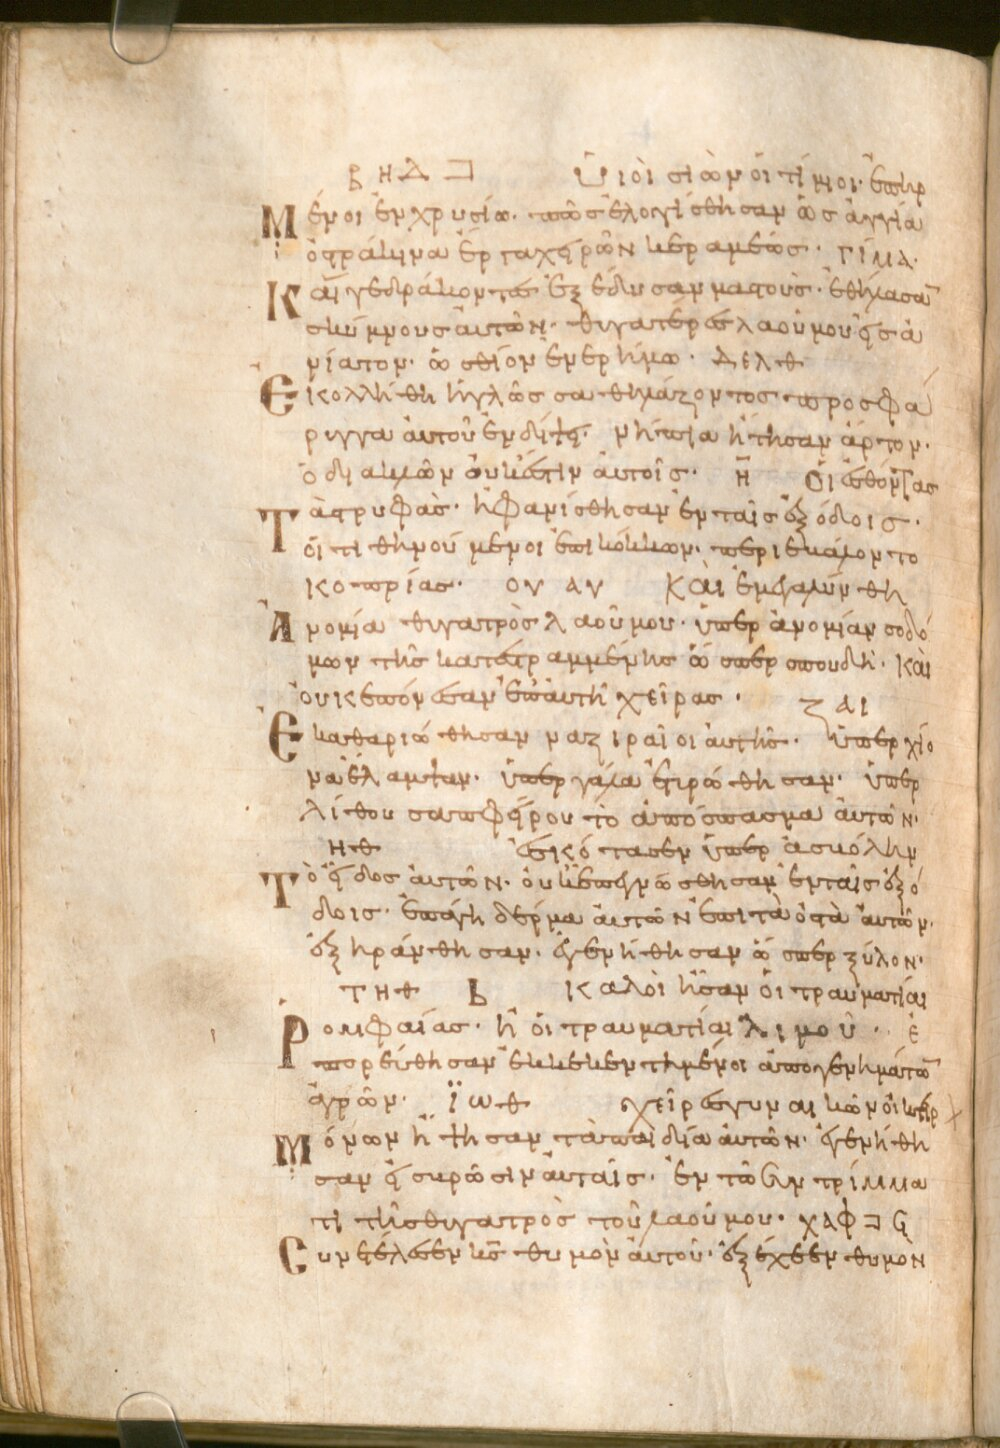 ΒΗΔ Υἱοὶ σιὼν ὁι τίμιοι· ἐπηρ
Μένοι ἐν χρυσίω· πῶσ ἐλογίσθησαν ὡσ ἀγγία
ὀστράκινα ἔρτα χειρῶν κεραμέωσ· ΓΙΜΑ·
Καί γε δράκοντεσ ἐξέδυσαν μαστοὺσ· ἐθήλασα̅
σκύμνουσ ἀυτῶν· θυγατέρεσ λαοῦ μου εἰσ ἀ
νίατον· ὡσ θίον ἐν ἐρήμω· ΔΕΛΘ
Ἐκολλήθη ἡ γλῶσσα θηλάζοντοσ προσ φά
ρυγγα ἀυτοῦ ἐν δίψει· νήπια ἤτησαν ἄρτον·
ὁ διακλῶν ὀυκ ἔστιν ἀυτοῖσ· Η Ὁι ἐσθόντεσ
Τὰσ τρυφὰσ· ἠφανίσθησαν ἐν ταῖσ ἐξόδοισ·
ὁι τιθηνούμενοι ἐπι κόκκων· περιεβάλοντο
κοπρίασ· ΟΥΑΥ Καὶ ἐμεγαλύνθη
Ἀνομία θυγατρὸσ λαοῦ μου· ὑπερ ἀνομίαν σοδό
μων τῆσ κατεστραμμένησ ὥσπερ σπουδῆ· Καὶ
ὀυκ ἐπόνεσαν ἐπ ἀυτῆ χεῖρασ· ΖΑΙ
Ἐκαθαριώθησαν ναζιραῖοι ἀυτῆσ· ὑπερ χιό
να ἔλαμψαν· ὑπερ γάλα ἐτυρώθησαν· ὑπερ
λίθου σαπφείρου τὸ ἀπόσπασμα ἀυτῶν·
ΗΘ ἐσκότασεν ὑπερ ἀσβόλην
Τὸ εἶδοσ ἀυτῶν· ὀυκ ἐπεγνώσθησαν ἐν ταῖσ ἐξό
δοισ· ἐπάγη δέρμα ἀυτῶν ἐπι τὰ ὀστὰ ἀυτῶν·
ἐξηράνθησαν· ἐγενήθησαν ὥσπερ ξύλον·
ΤΗΘ Β Καλοὶ ἦσαν ὁι τραυματίαι
Ῥομφαίασ· ἢ ὁι τραυματίαι λιμοῦ· ἐ
πορεύθησαν ἐκκεκεντημένοι ἀπο γενημάτω̅
ἀγρῶν· ΪΩΘ χεῖρεσ γυναικῶν ὀικτιρ
Μόνων ἥψησαν τὰ παιδία ἀυτῶν· ἐγενήθη
σαν εἰσ βρῶσιν ἀυταῖσ· ἐν τῶ συντρίμμα
τι τῆσ θυγατρὸσ τοῦ λαοῦ μου·
Συνετέλεσεν κ̅σ̅ θυμὸν ἀυτοῦ· ἐξέχεεν θυμὸν